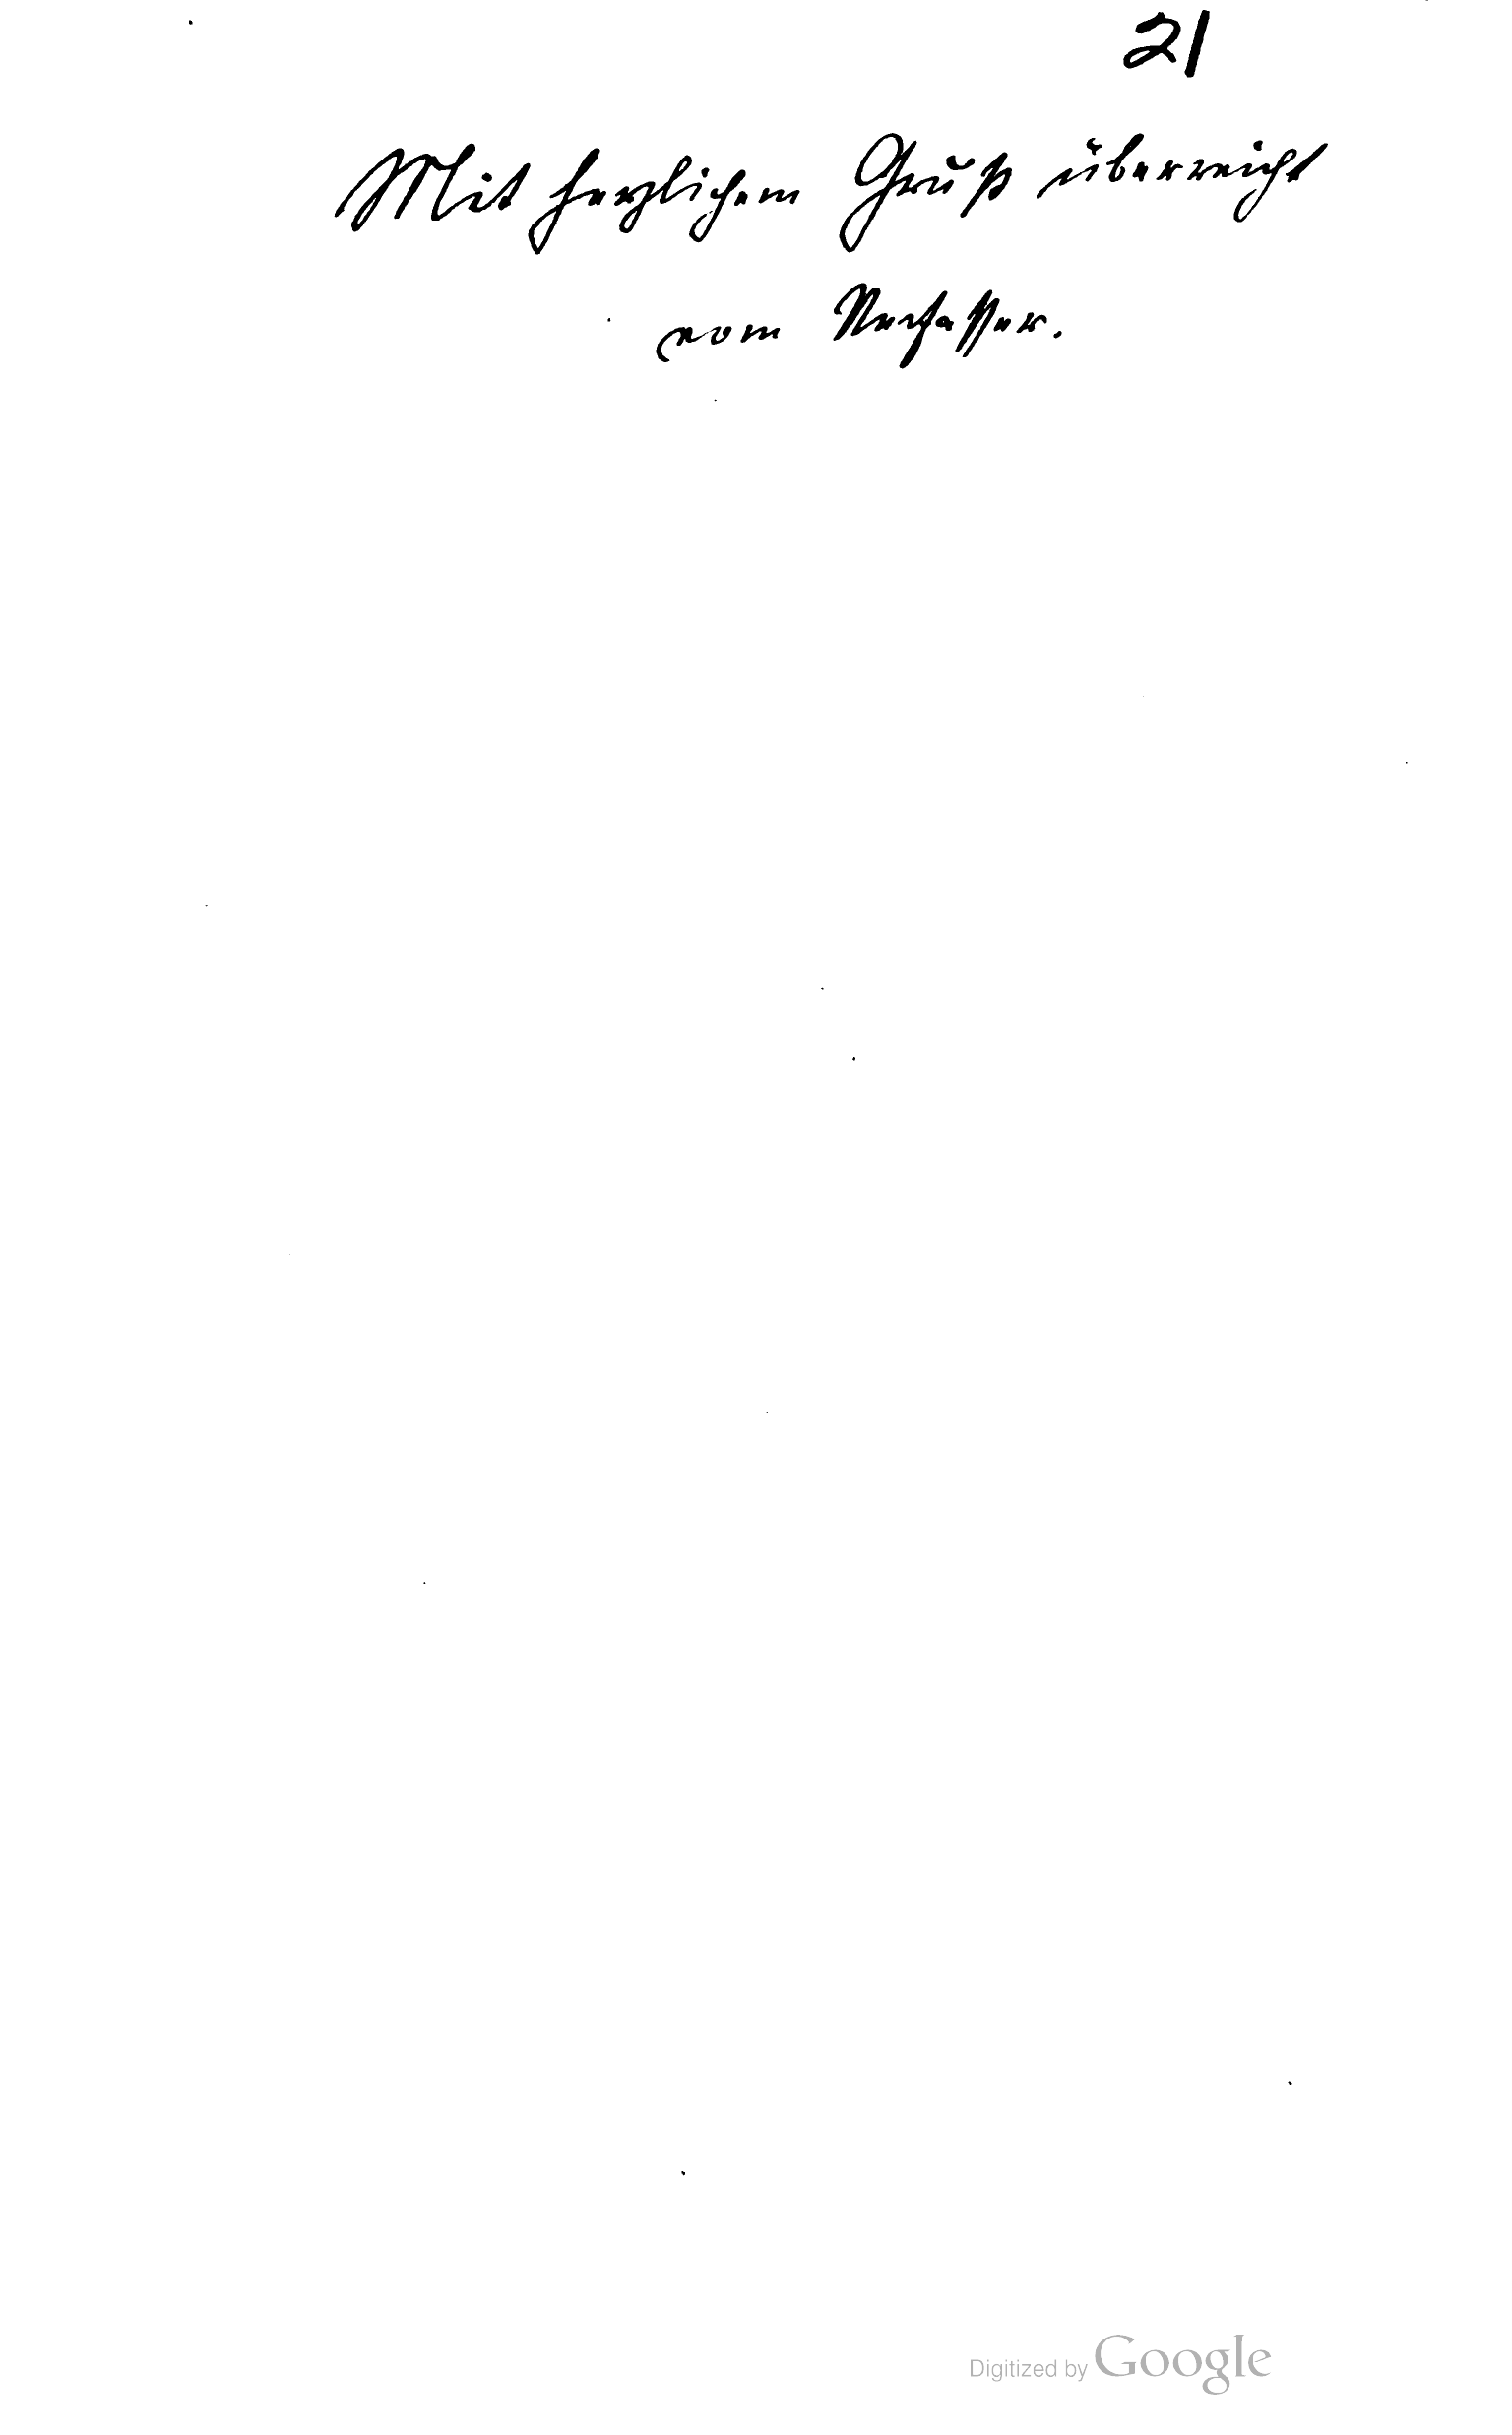 21
Mit herzlichem Gruß überreicht
vom Verfasser.
Digitized by Google